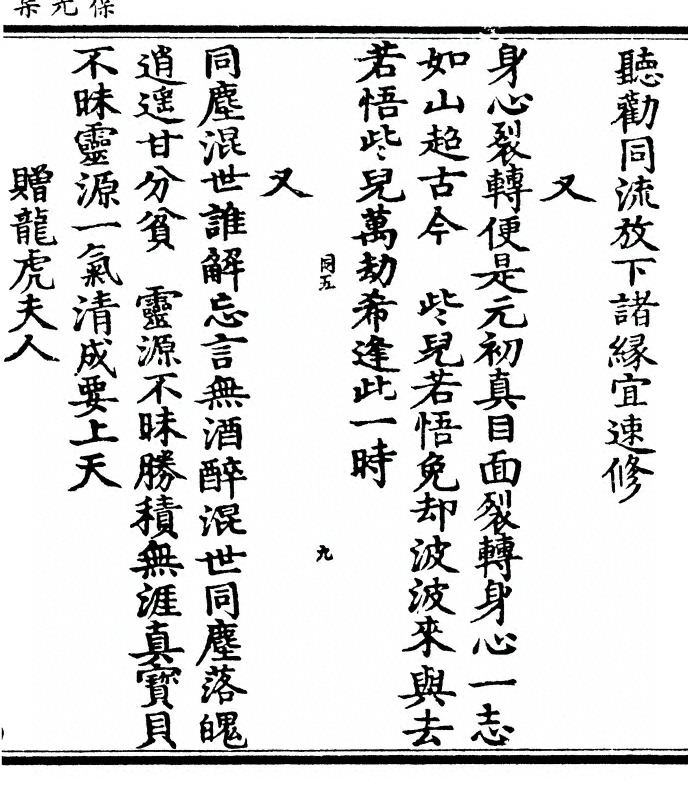 保光集
聽勸同流放下諸緣宜速修
又
身心裂轉便是元初真目面裂轉身心一志
如山超古今　些兒若悟免却波波來與去
若悟些兒萬劫希逢此一時
同五
九
又
同塵混世誰解忘言無酒醉混世同塵落魄
逍遥甘分貧　靈源不昧勝積無涯真寶貝
不昧靈源一氣清成要上天
贈龍虎夫人